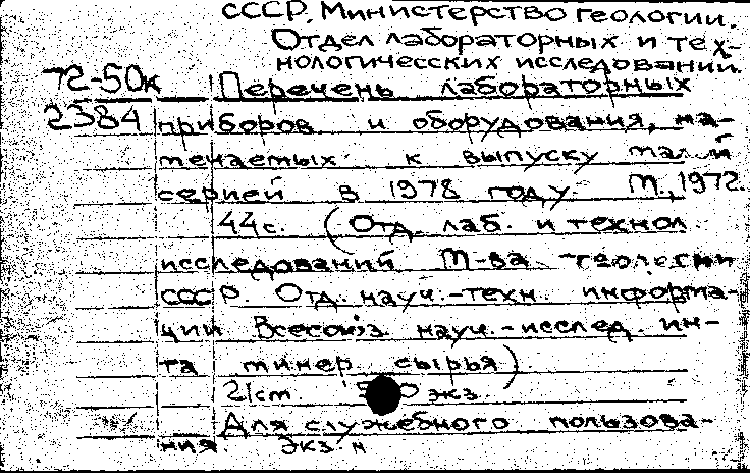 СССР. Министерство геологии.
Отдел лабораторных и тех-
нологических исследований.
72-50к Перечень лабораторных
2384 приборов и оборудования, на-
мечаемых к выпуску малой
серией в 1978 году. М., 1972.
44 с. (Отд. лаб. и технол.
исследований М-ва геологии
СССР. Отд. науч.-техн. информа-
ции Всесоюз. науч.-исслед. ин-
та минер. сырья)
экз.
Для служебного пользова-
ния. Экз. н